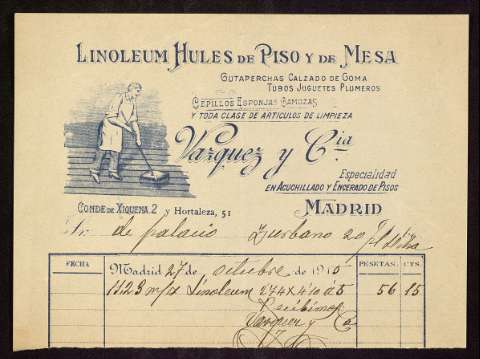 LINOLEUM HULES DE PISO Y DE MESA
GUTAPERCHAS CALZADO DE GOMA
TUBOS JUGUETES PLUMEROS
CEPILLOS ESPONJAS GAMUZAS
Y TODA CLASE DE ARTICULOS DE LIMPIEZA
Vazquez y Cia.
Especialidad
EN ACUCHILLADO Y ENCERADO DE PISOS
CONDE DE XIQUENA, 2 y Hortaleza, 51
MADRID
Sr. de palacio Zurbano 20
FECHA PESETAS. CTS.
Madrid 27 de octubre de 1915
11.23 m/x Linoleum 274x410 á 5 56 15
Recibimos
Vazquez y Ca